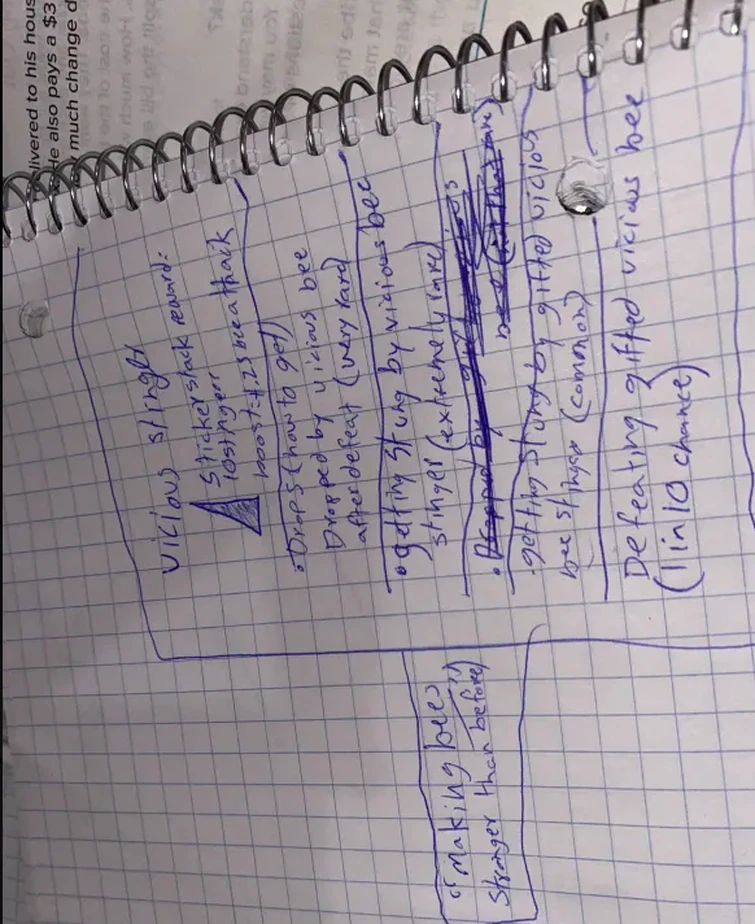 livered to his hous
He also pays a $3
much change d
Vicious stinger
Sticker stack reward:
10 stinger
boost = 1.25 bee attack
•Drops (how to get)
Dropped by vicious bee
after defeat (very rare)
•getting stung by vicious bee
stinger (extremely rare)
•Dropped by
•getting stung by gifted vicious
bee stinger (common)
Defeating gifted vicious bee
(1 in 10 chance)
"Making bees
stronger than before"